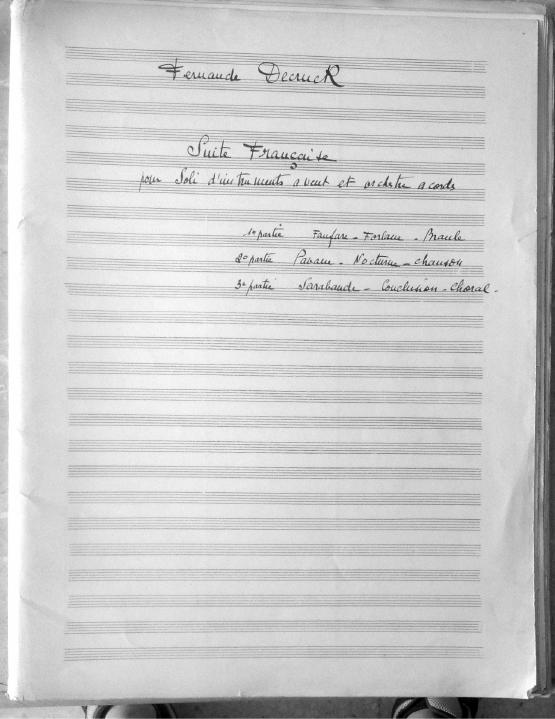 Fernande Decruck
Suite Française
pour Soli d'instruments a vent et orchstre a cords
1e partie Fanfare - Forlane - Branle
2e partie Pavane - Nocturne - Chanson
3e partie Sarabande - Conclusion - Choral.